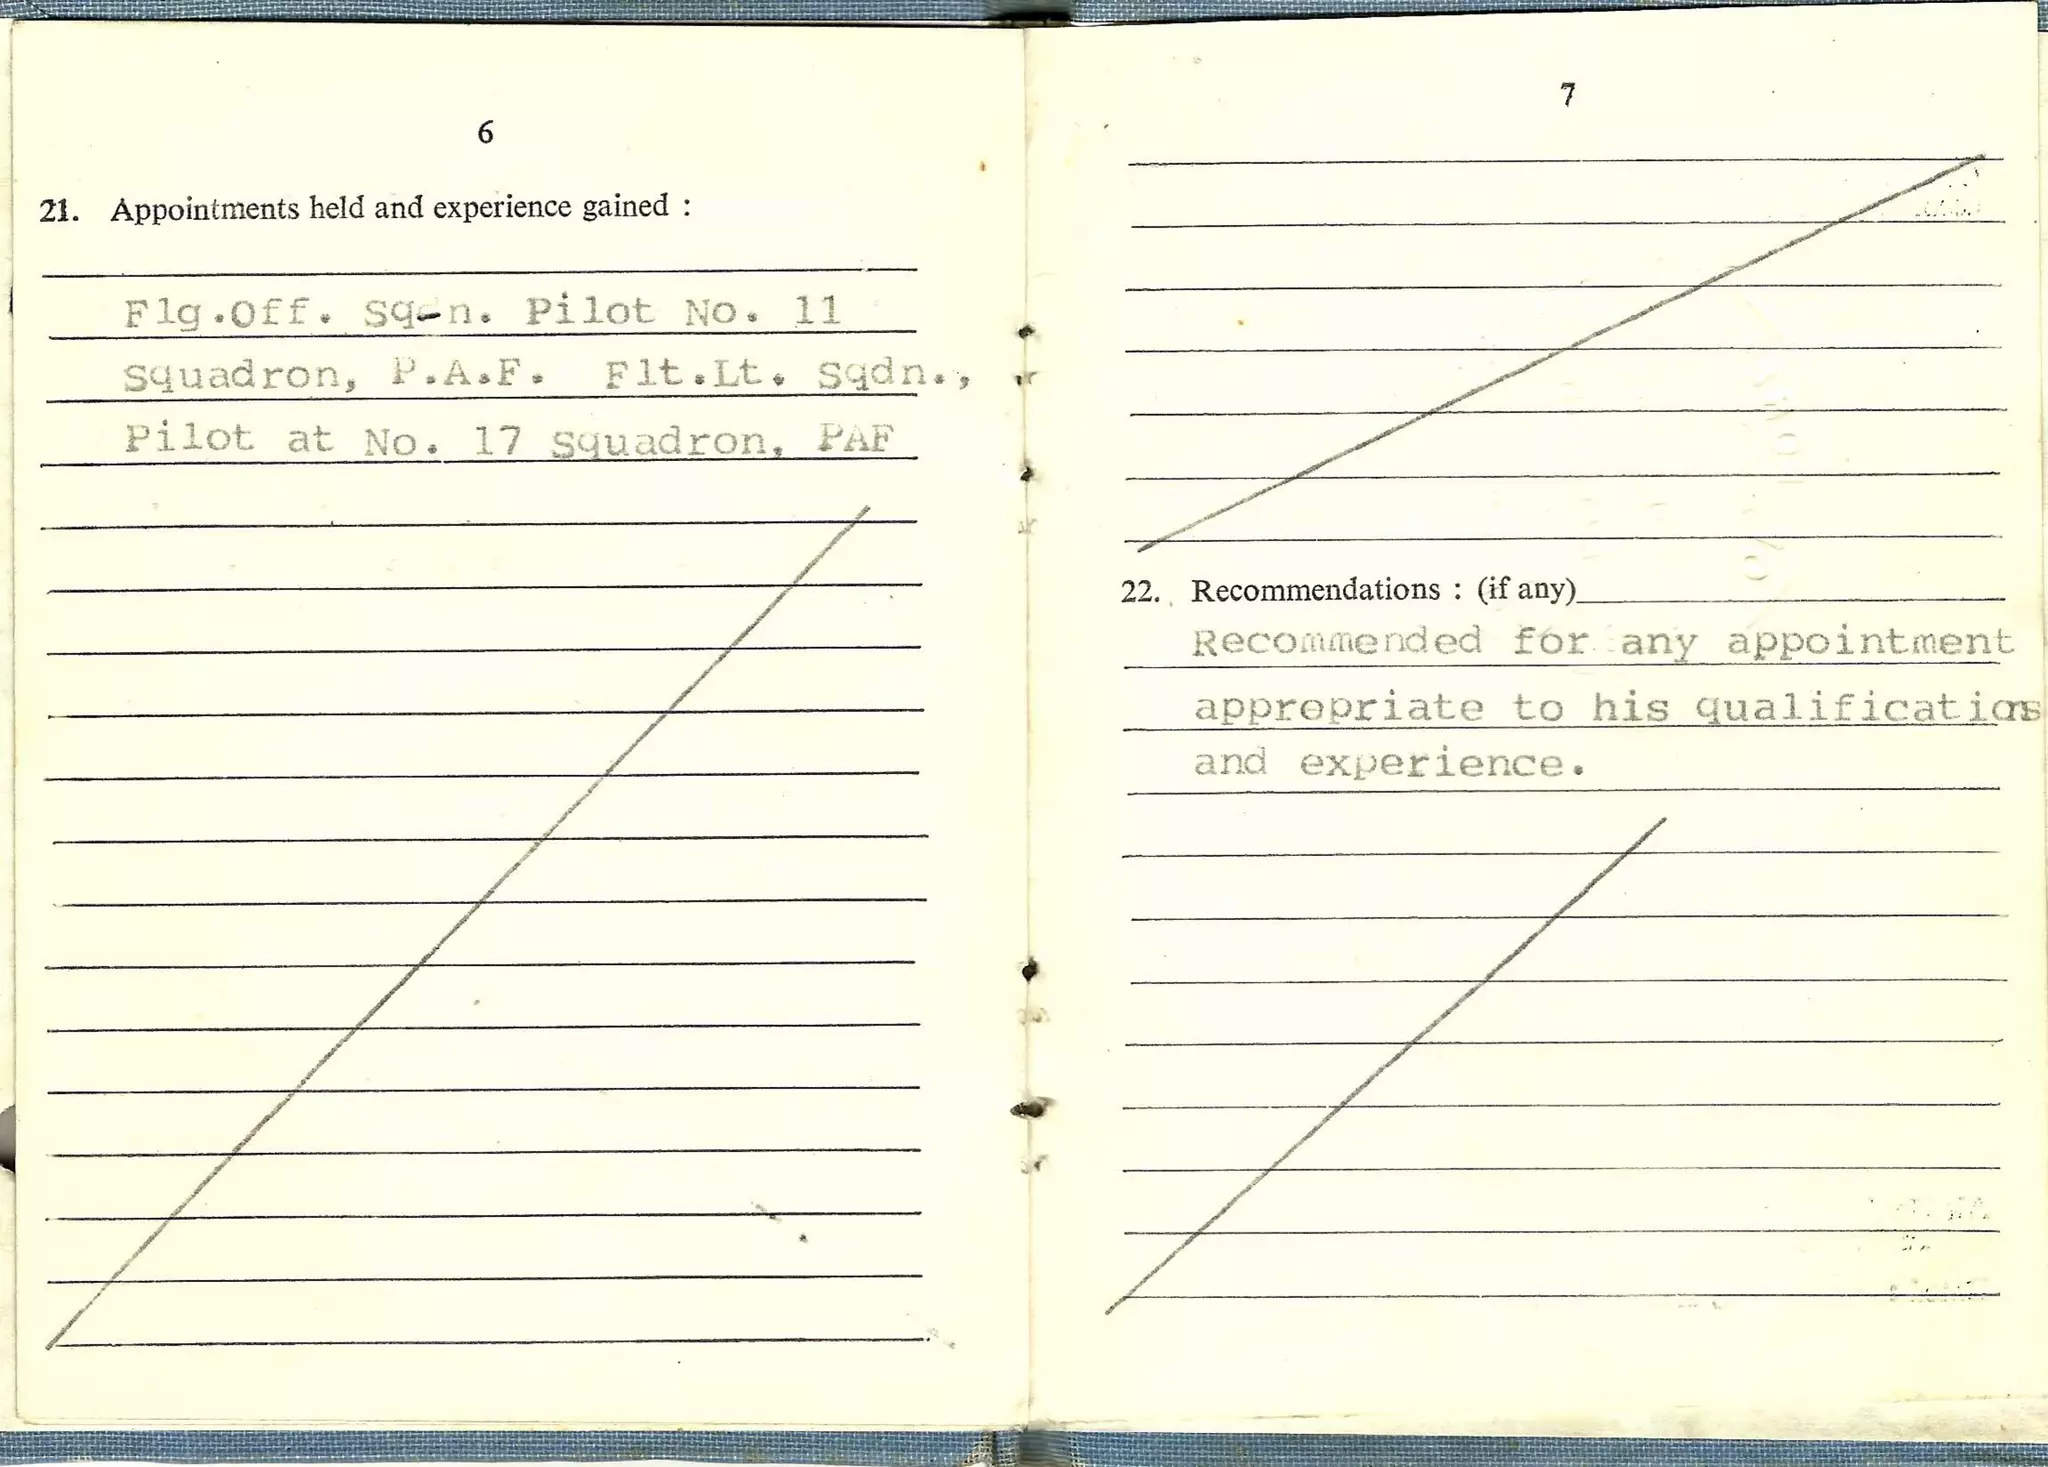 6
21. Appointments held and experience gained :
Flg.Off. Sq-n. Pilot No. 11
Squadron, P.A.F. Flt.Lt. Sqdn.,
Pilot at No. 17 Squadron, PAF
7
22. Recommendations : (if any)
Recommended for any appointment
appropriate to his qualifications
and experience.